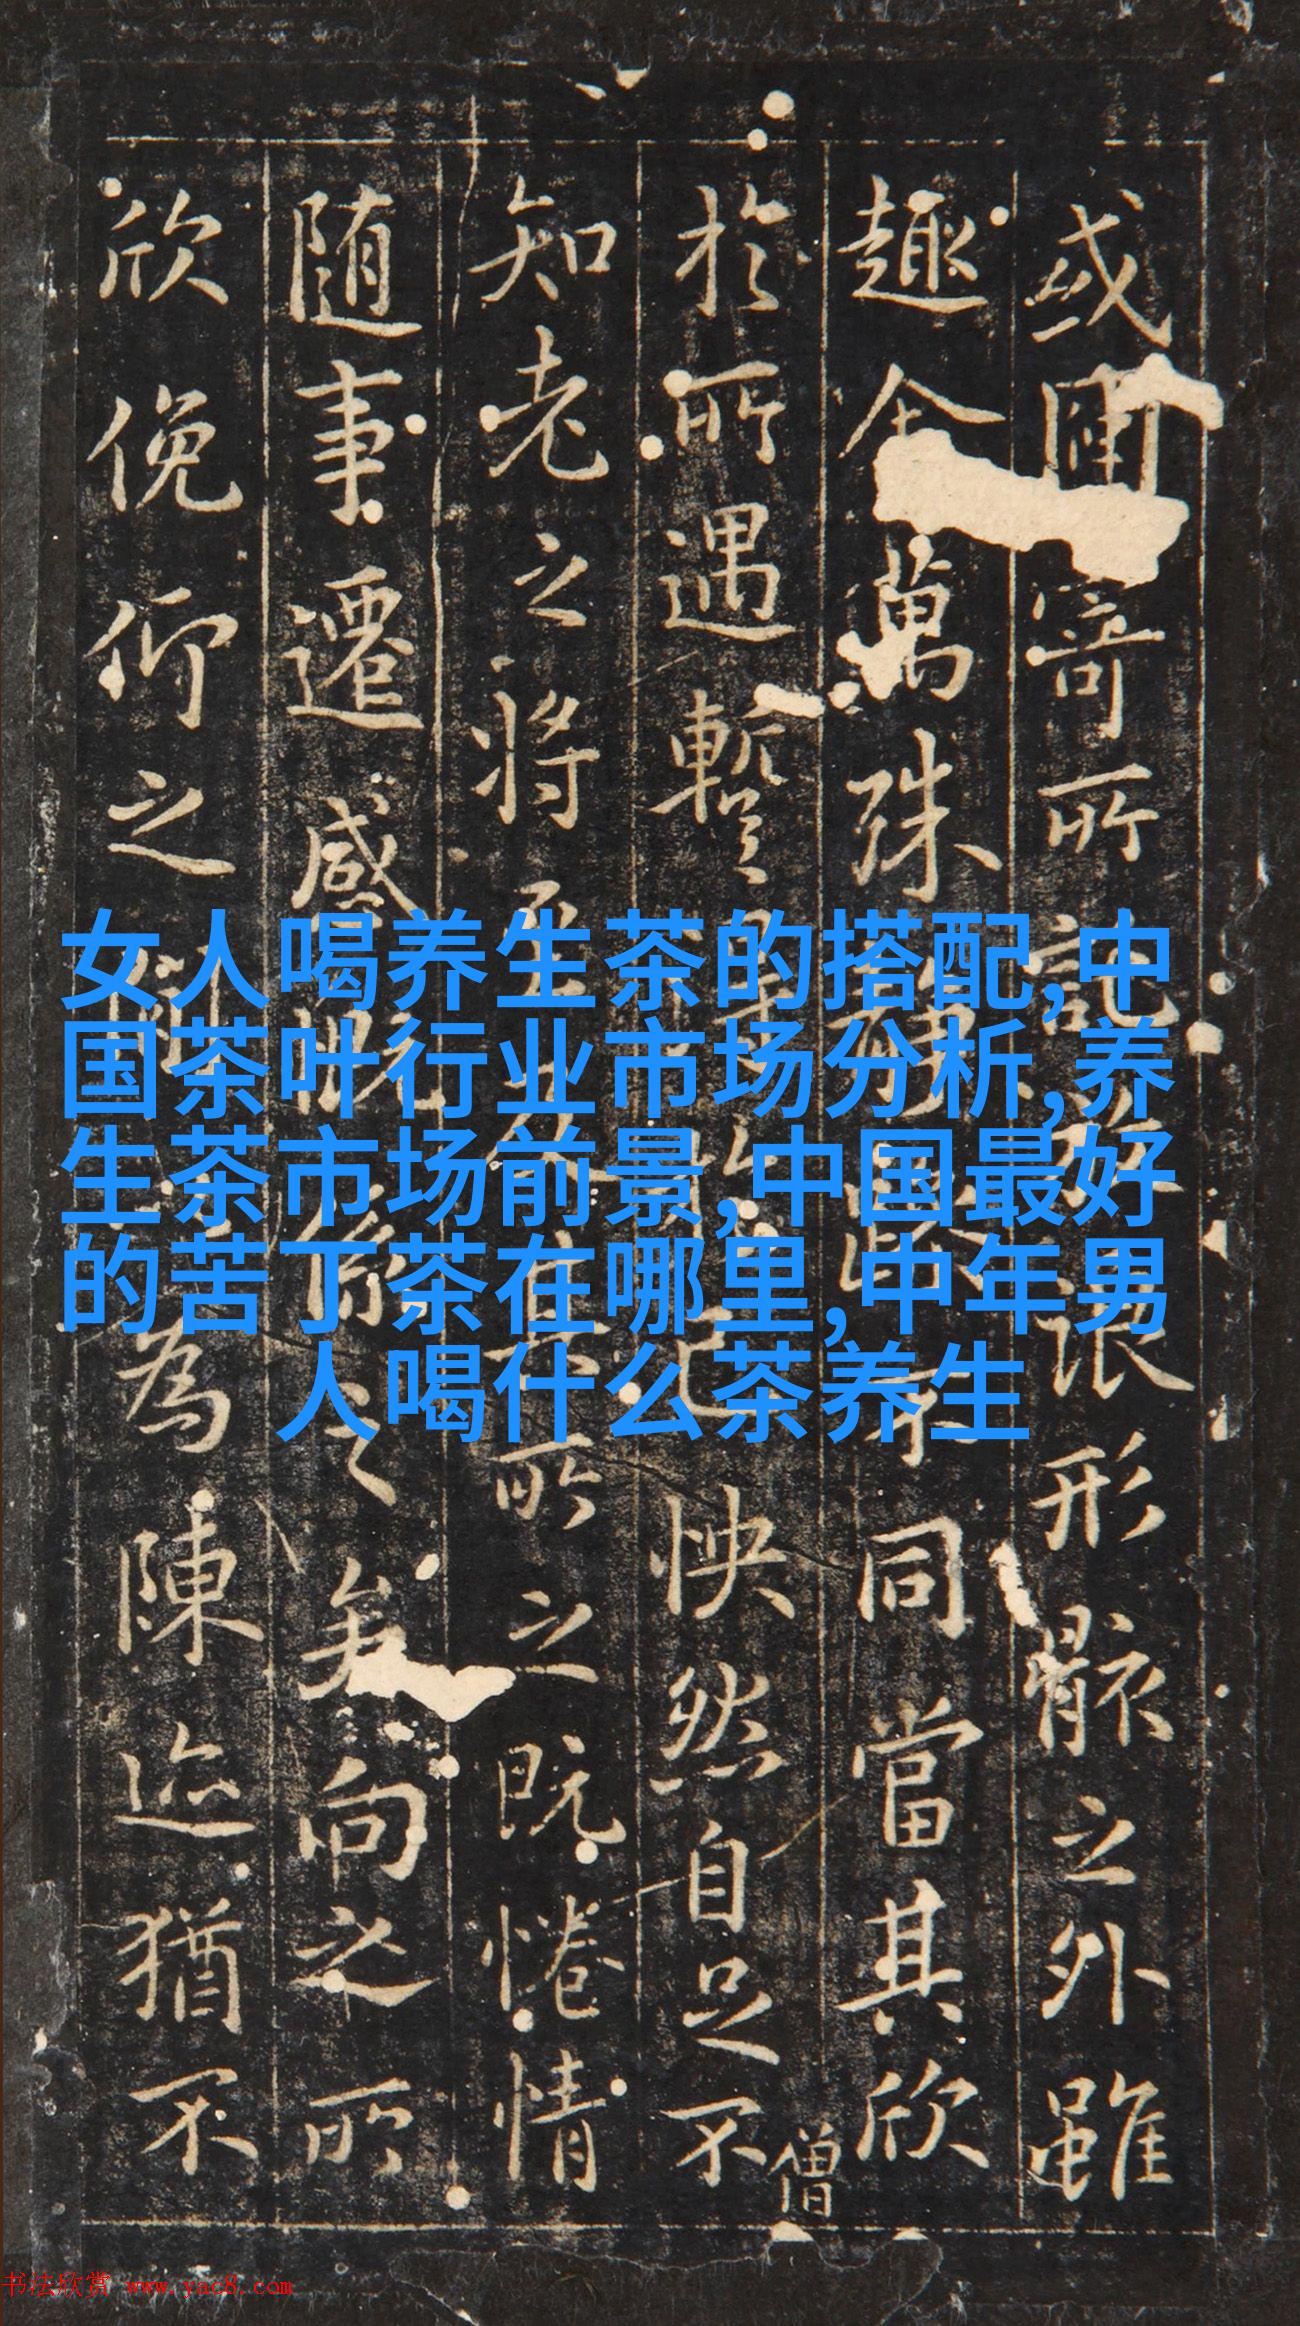 或因寄所託放浪形骸之外雖
趣舍萬殊静躁不同當其欣
於所遇暫得於己怏然自足不
僧
知老之将至及其所之既惓情
随事遷感慨係之矣向之所
欣俛仰之間以為陳迹猶不
女人喝养生茶的搭配,中
国茶叶行业市场分析,养
生茶市场前景,中国最好
的苦丁茶在哪里,中年男
人喝什么茶养生
书法欣赏 www.yac8.com